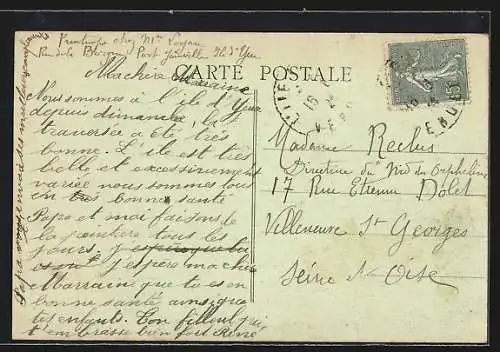 Printemps chez Mme
Rue de la Port Joinville Ile d'Yeu
CARTE POSTALE
Ma chère Marraine
Nous sommes à l'île d'Yeu
depuis dimanche, la
traversée a été très
bonne. L'île est très
belle et excessivement
variée nous sommes tous
en très bonne santé
Papa et moi faisons de
la peinture tous les
jours. j'espère que tu
j'espère ma chère
Marraine que tu es en
bonne santé ainsi que
tes enfants. Ton filleul qui
t'embrasse bien fort René
Madame Reclus
Directrice du Nid du Orphelin
17 Rue Etienne Dolet
Villeneuve St Georges
Seine & Oise
15